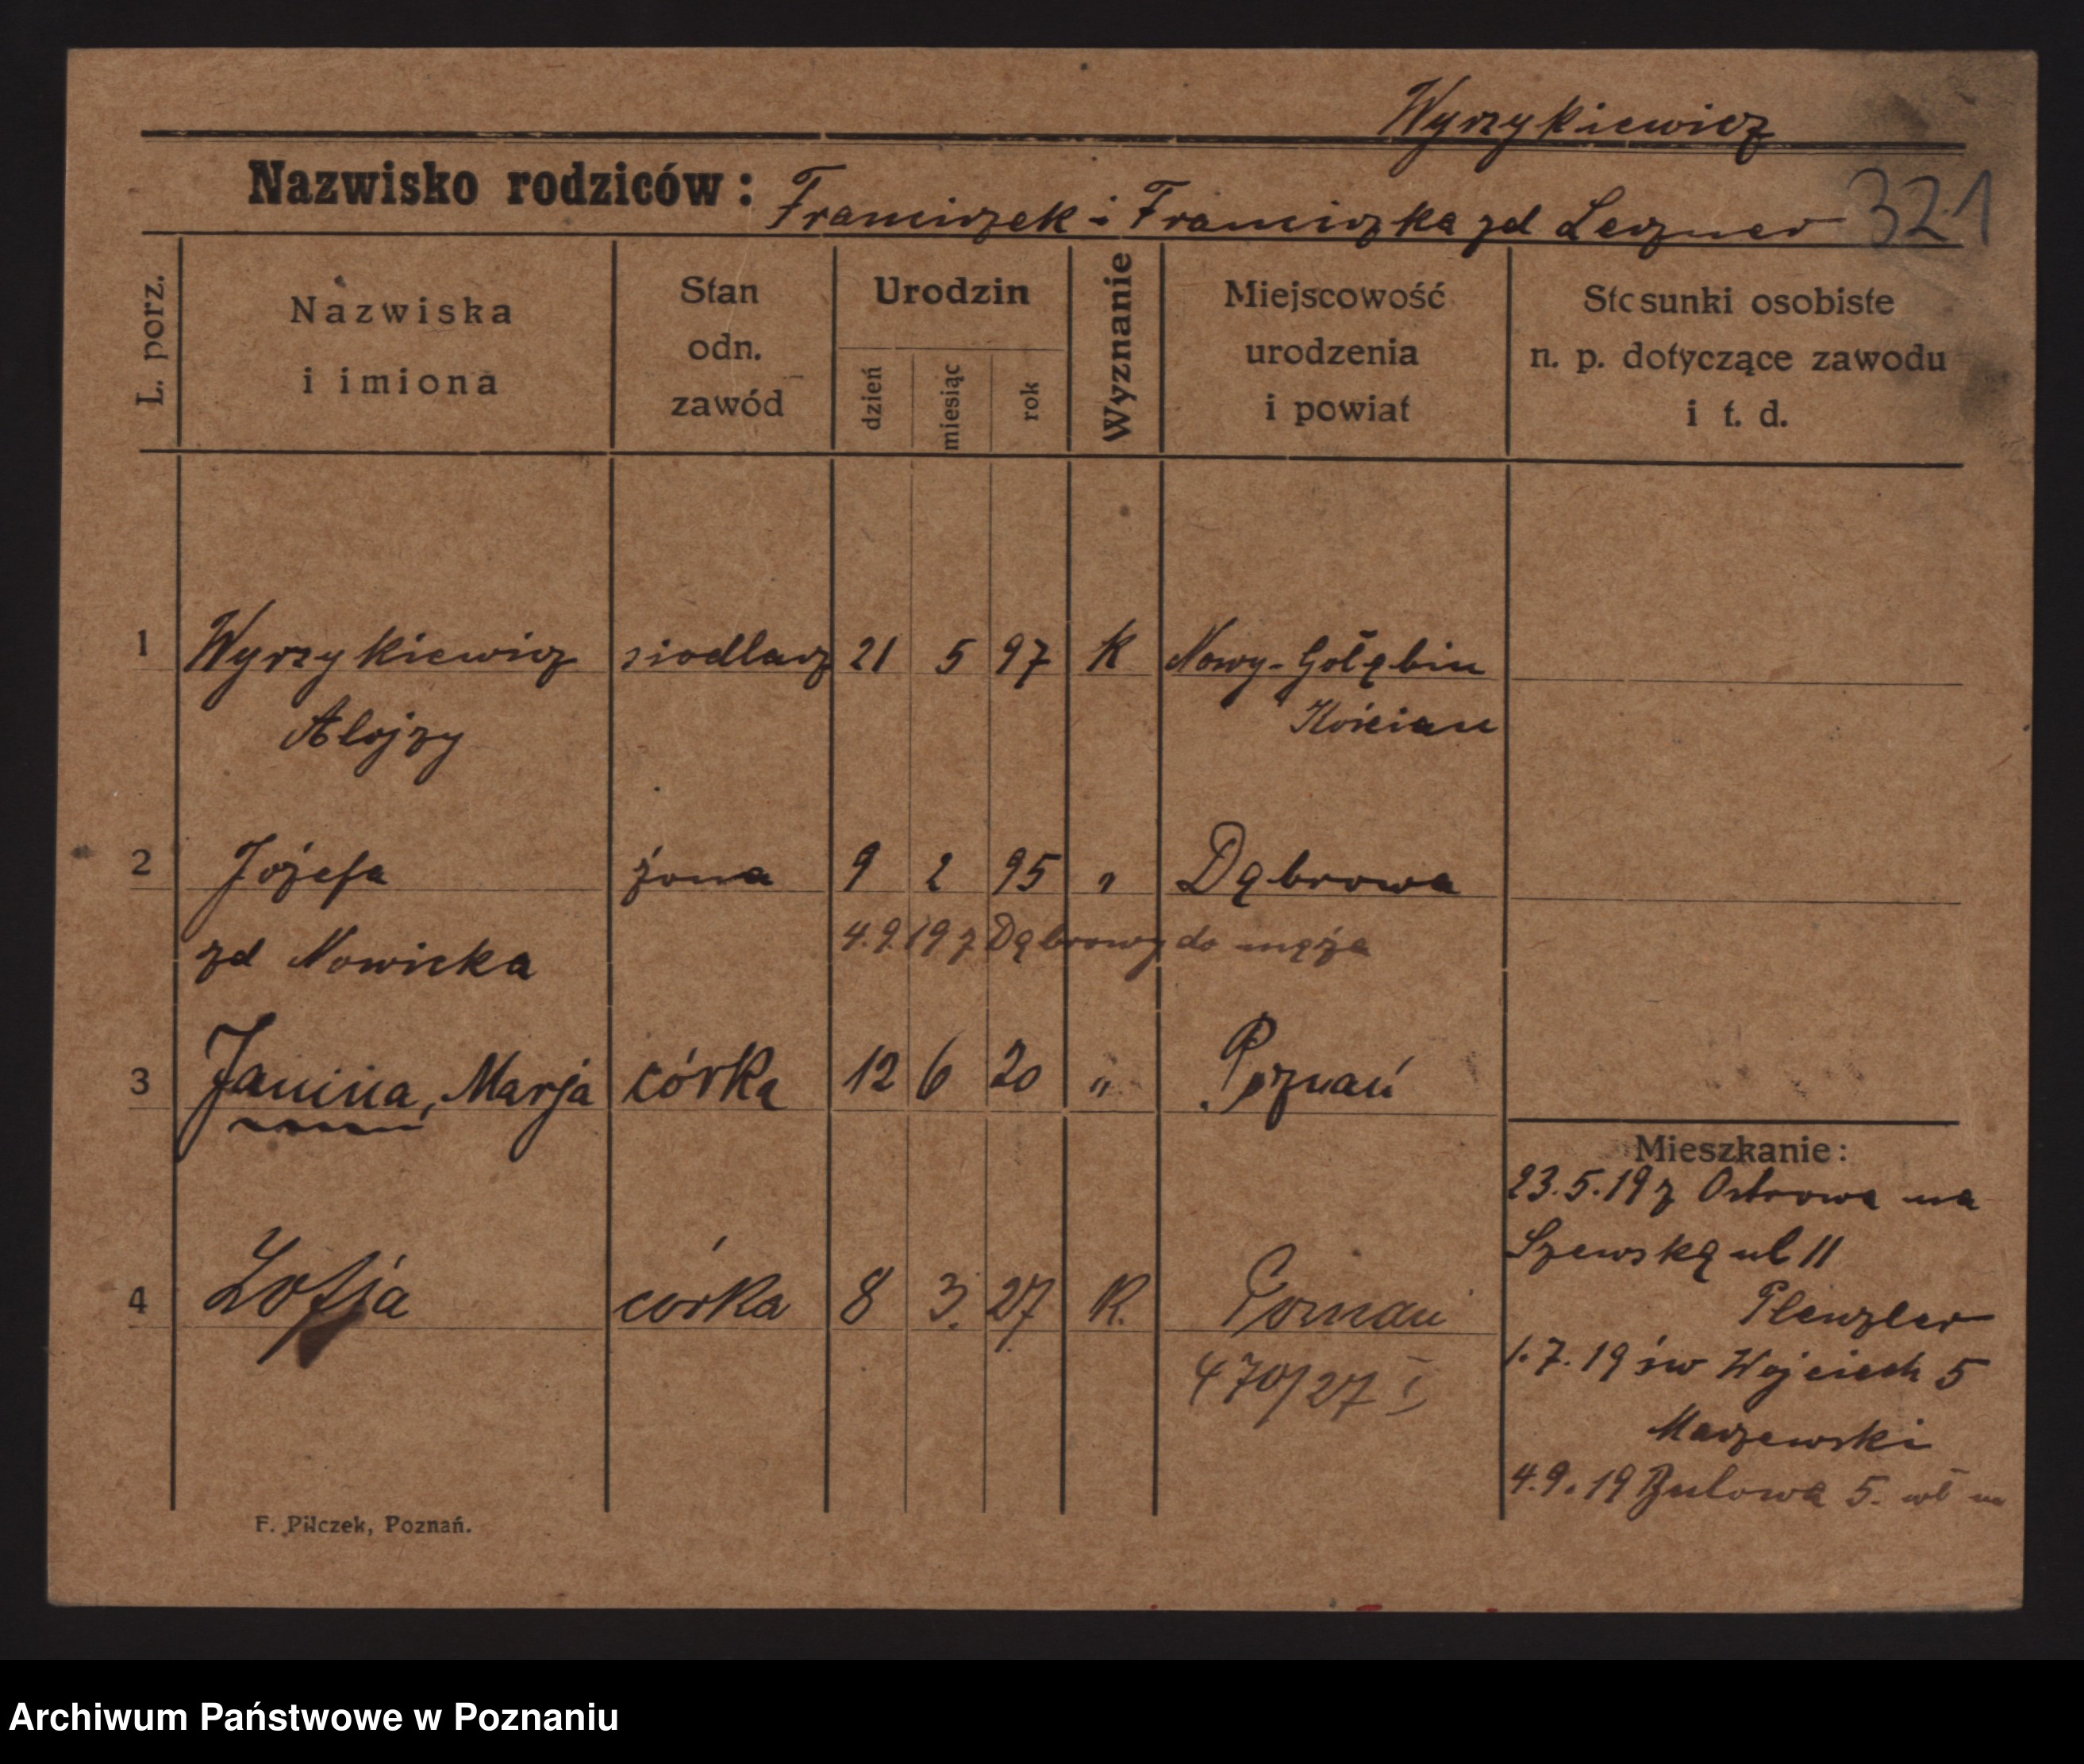 Wyrzykiewicz
Nazwisko rodziców: Franciszek i Franciszka zd Leczner 321
L. porz.
Nazwiska i imiona
Stan odn. zawód
Urodzin
dzień miesiąc rok
Wyznanie
Miejscowość urodzenia i powiat
Stosunki osobiste n. p. dotyczące zawodu i t. d.
1 Wyrzykiewicz siodlarz 21 5 97 K Nowy-Gołębin
Alojzy Kościan
2 Józefa żona 9 2 95 " Dąbrowa
zd Nowicka 4.9.19 z Dąbrowy do męża
3 Janina, Marja córka 12 6 20 " Poznań
Mieszkanie:
23.5.19 z Ostrowa na
Szewską ul 11
4 Zofja córka 8 3. 27 K. Poznań
Plenzler
470/27 I
1.7.19 św Wojciech 5
Maczewski
4.9.19 Bulowa 5.
F. Pilczek, Poznań.
Archiwum Państwowe w Poznaniu